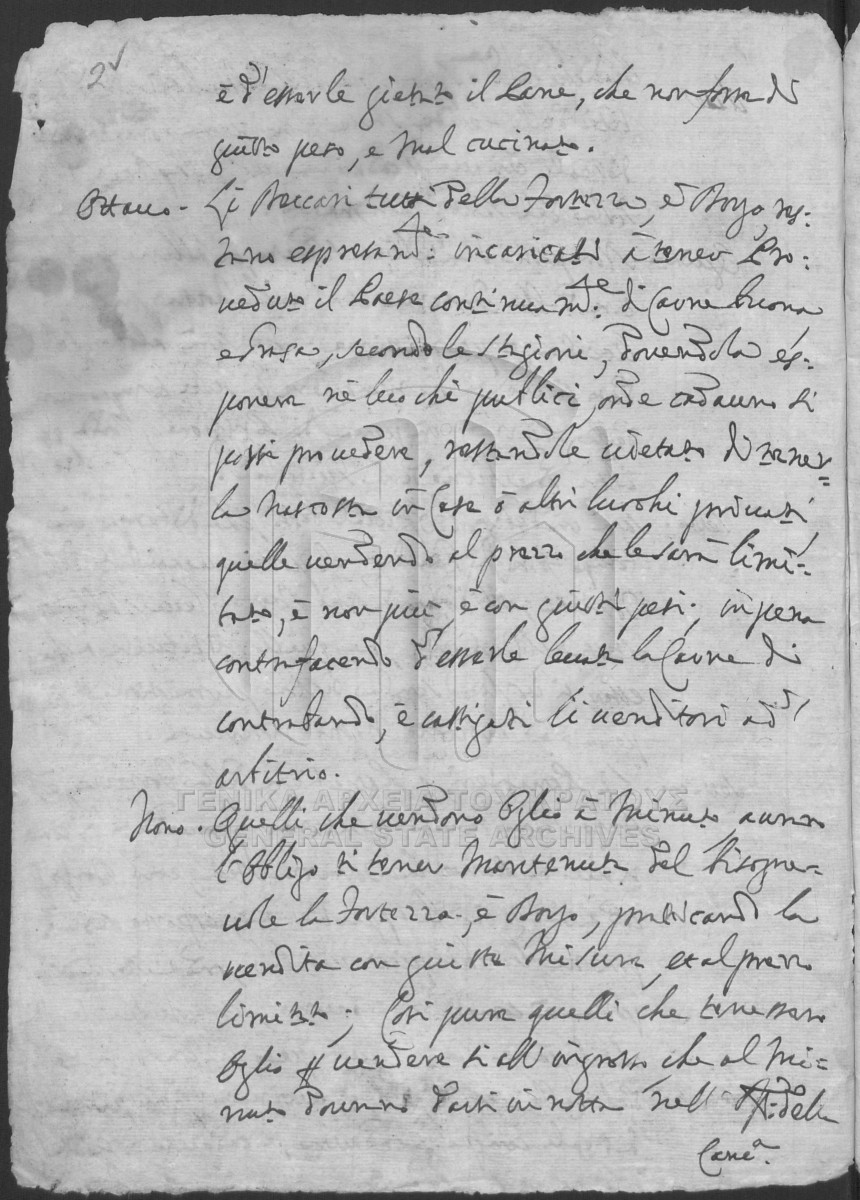 2v
è d'esserle gietato il Pane, che non fosse di
giusto peso, e mal cucinato.
Ottavo. Li Beccari tutti della Fortezza, e Borgo, res:
tano espressam.te incaricati à tener Pro:
veduto il Paese continuam.te di Carne buona
e grassa, secondo le stagioni, dovendola es:
poner ne luochi publici onde cadauno si
possi provedere, restandole vietato di tener:
la nascosta in Case ò altri luochi privati,
quelle vendendo al prezzo che le sarà limi:
tato, è non più, è con giusti pesi; in pena
contrafacendo d'esserle levata la Carne di
contrabando, è castigati li venditori ad
arbitrio.
Nono. Quelli che vendono Oglio à minuto, avranno
l'obbligo di tener mantenuta del bisogne:
vole la Fortezza, è Borgo, praticando la
vendita con giusta misura, et al prezzo
limitato; Così pure quelli che tenessero
Oglio p vendere sì all'ingrosso che al mi:
nuto dovranno darsi in notta nell' della
Canc.a
ΓΕΝΙΚΑ ΑΡΧΕΙΑ ΤΟΥ ΚΡΑΤΟΥΣ
GENERAL STATE ARCHIVES